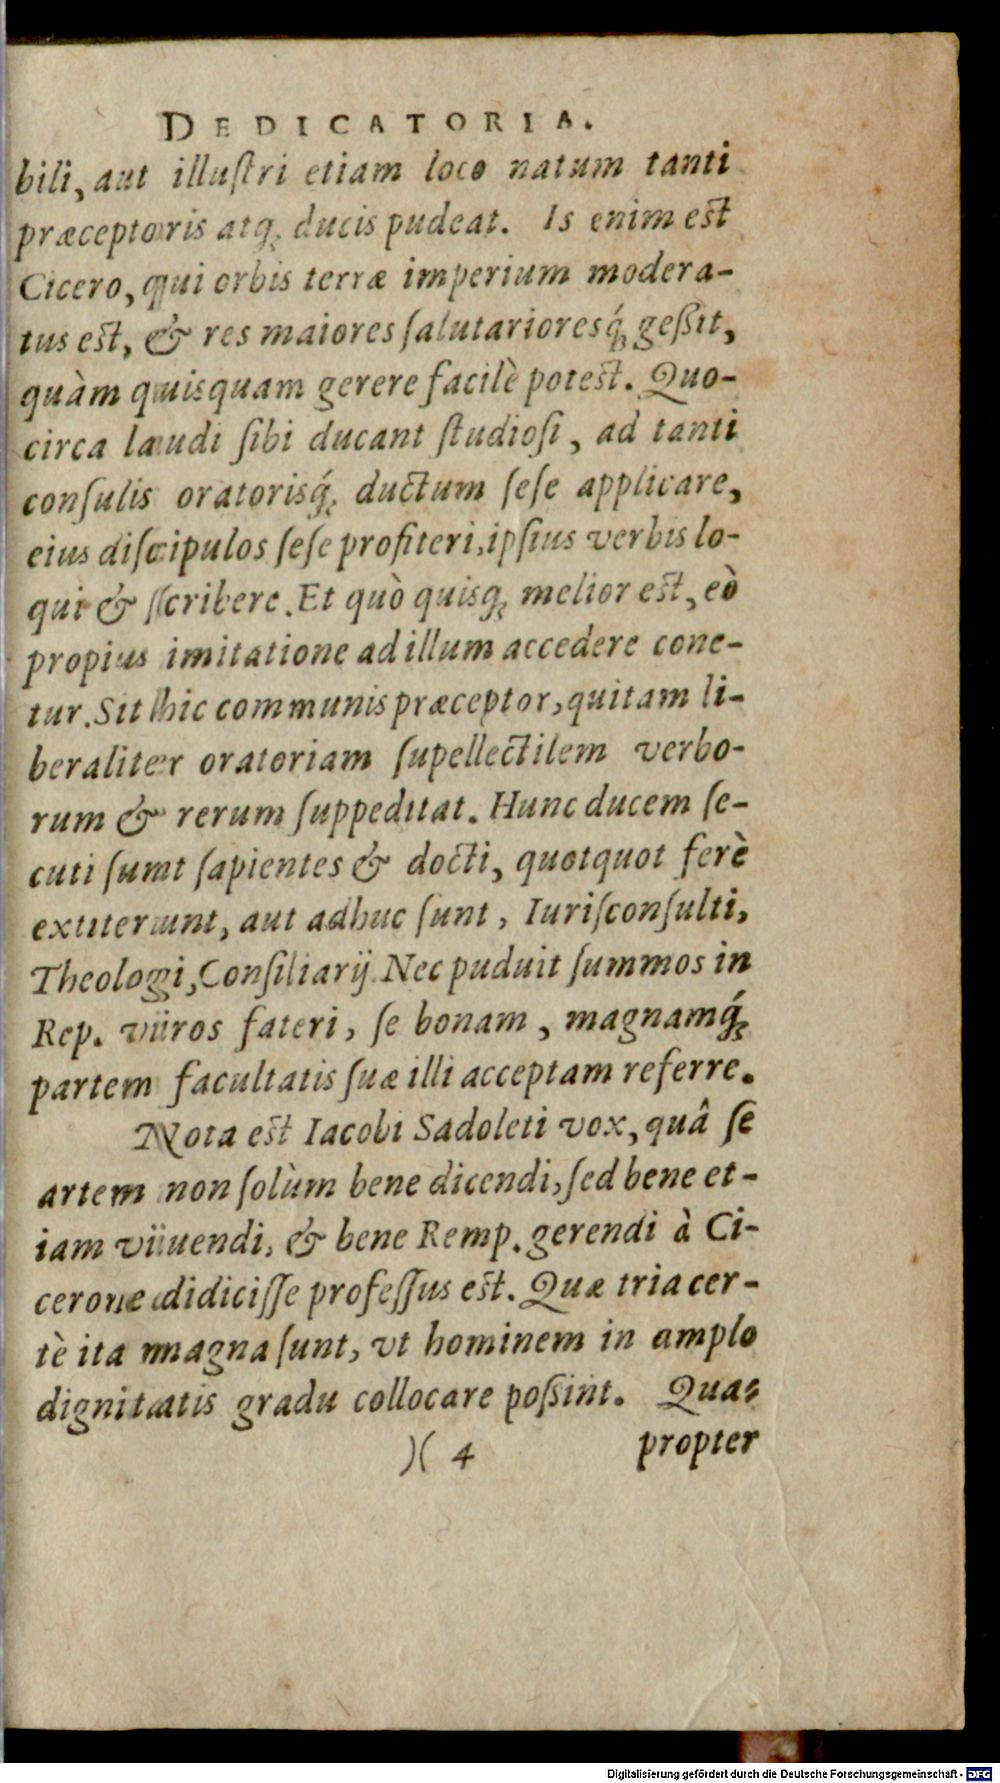 DEDICATORIA.
bili, aut illuſtri etiam loco natum tanti
præceptoris atq; ducis pudeat. Is enim eſt
Cicero, qui orbis terræ imperium modera-
tus eſt, & res maiores ſalutarioresq́; geßit,
quàm quisquam gerere facilè poteſt. Quo-
circa laudi ſibi ducant ſtudioſi, ad tanti
conſulis oratorisq́; ductum ſeſe applicare,
eius diſcipulos ſeſe profiteri, ipſius verbis lo-
qui & ſcribere. Et quò quisq; melior eſt, eò
propius imitatione ad illum accedere cone-
tur. Sit hic communis præceptor, qui tam li-
beraliter oratoriam ſupellectilem verbo-
rum & rerum ſuppeditat. Hunc ducem ſe-
cuti ſunt ſapientes & docti, quotquot ferè
extiterunt, aut adhuc ſunt, Iuriſconſulti,
Theologi, Conſiliarij. Nec puduit ſummos in
Rep. viros fateri, ſe bonam, magnamq́;
partem facultatis ſuæ illi acceptam referre.
Nota eſt Iacobi Sadoleti vox, quâ ſe
artem non ſolùm bene dicendi, ſed bene et-
iam viuendi, & bene Remp. gerendi à Ci-
cerone didiciſſe profeſſus eſt. Quæ tria cer-
tè ita magna ſunt, vt hominem in amplo
dignitatis gradu collocare poßint. Qua-
)( 4 propter
Digitalisierung gefördert durch die Deutsche Forschungsgemeinschaft - DFG